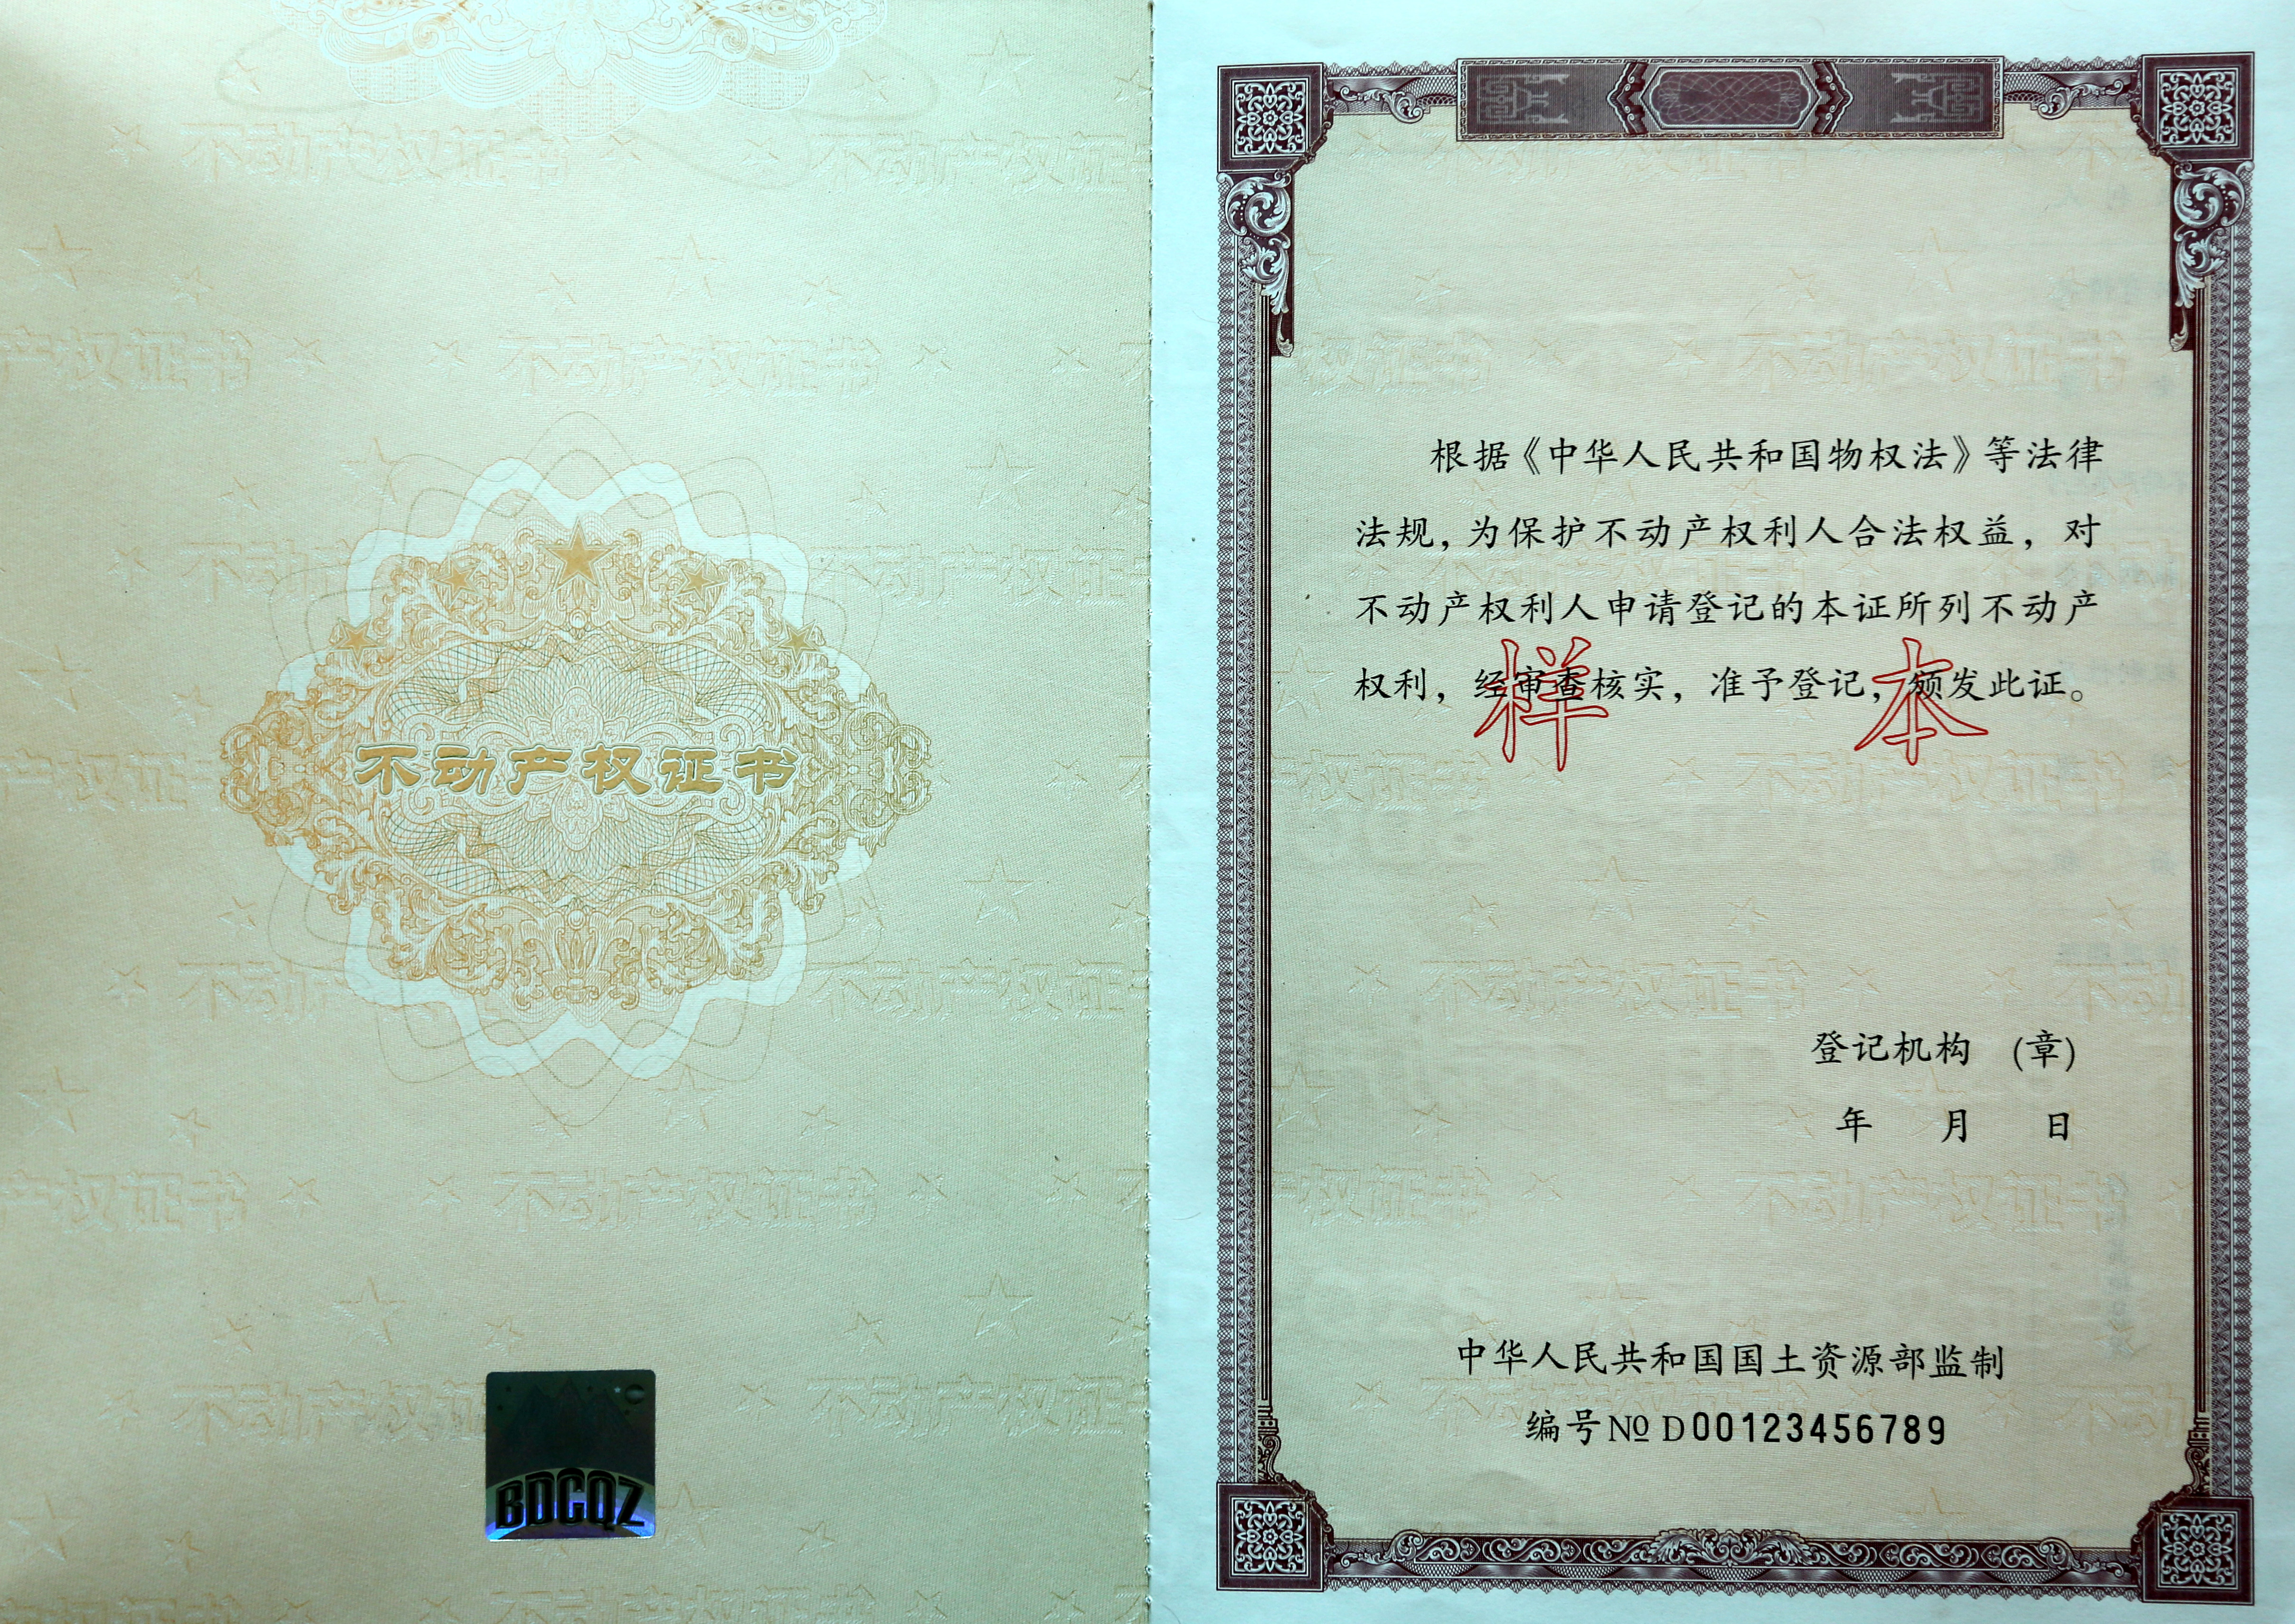 不动产权证书
BDCQZ
根据《中华人民共和国物权法》等法律
法规，为保护不动产权利人合法权益，对
不动产权利人申请登记的本证所列不动产
权利，经审查核实，准予登记，颁发此证。
样 本
登记机构 (章)
年 月 日
中华人民共和国国土资源部监制
编号 № D00123456789